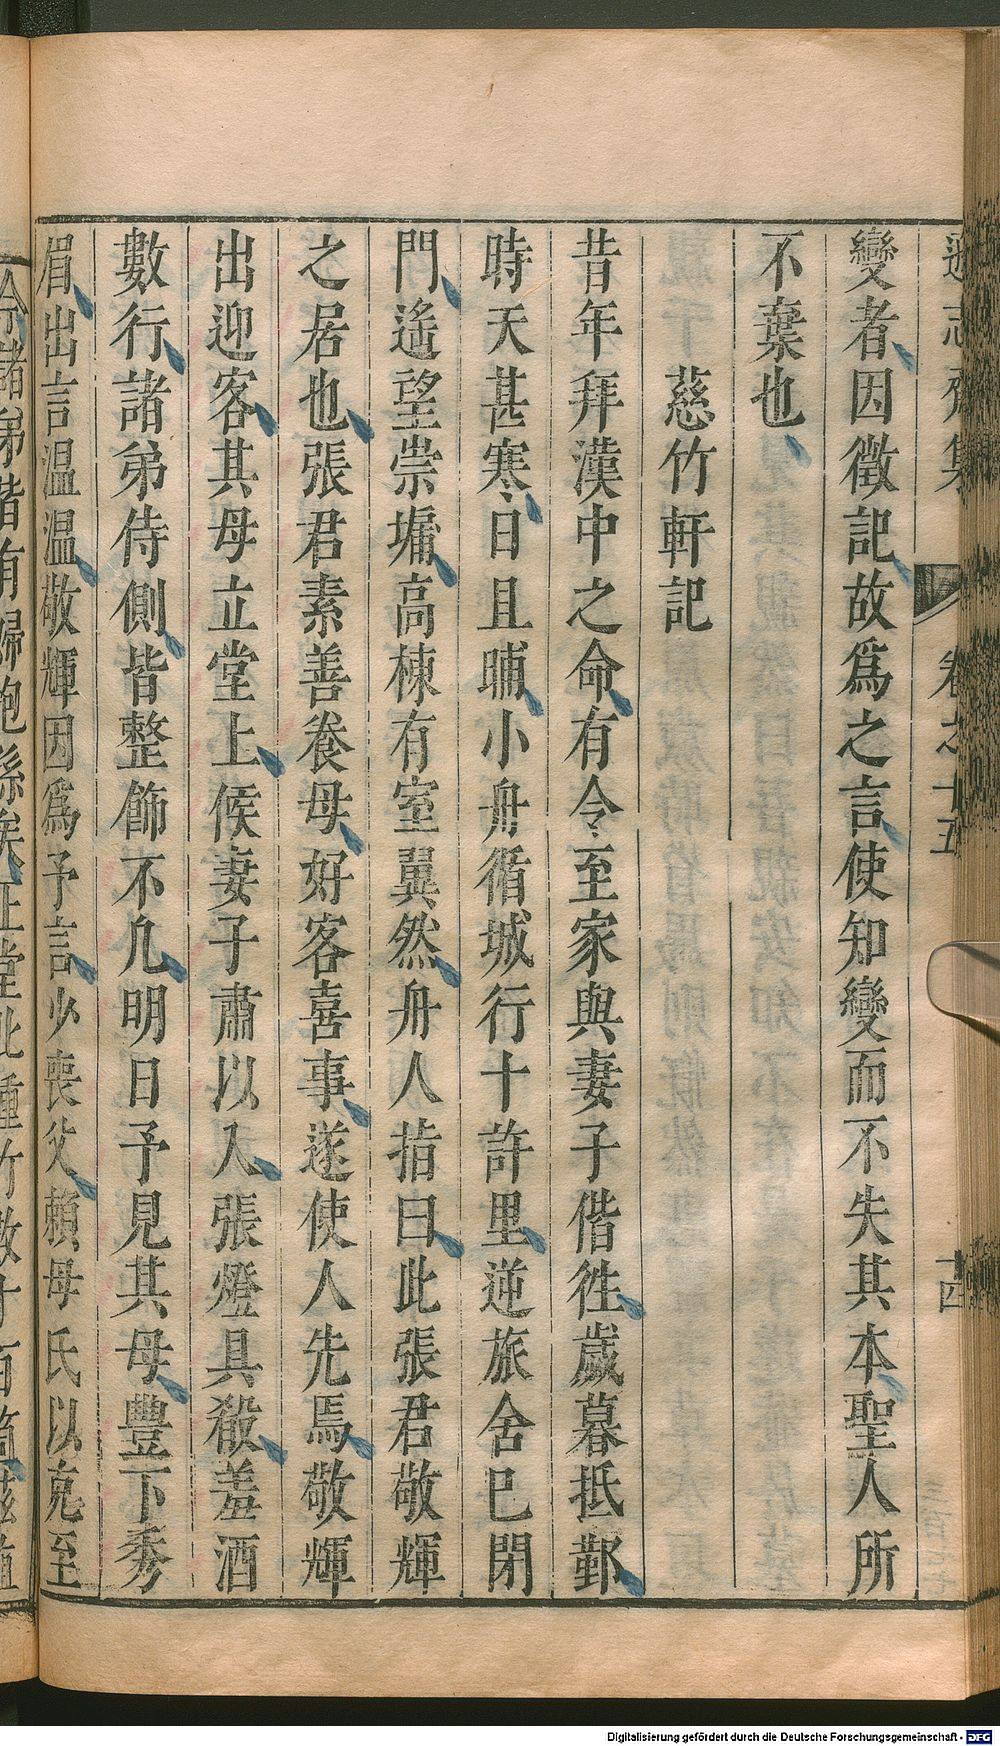 變者因徵記故爲之言使知變而不失其本聖人所
不棄也
慈竹軒記
昔年拜漢中之命有令至家與妻子偕徃歲暮抵鄞
時天甚寒日且晡小舟循城行十許里逆旅舍已閉
門遙望崇墉高棟有室翼然舟人指曰此張君敬輝
之居也張君素善養母好客喜事遂使人先焉敬輝
出迎客其母立堂上候妻子肅以入張燈具殽羞酒
數行諸弟侍側皆整飾不凡明日予見其母豐下秀
眉出言温温敬輝因爲予言少喪父賴母氏以克至
今諸弟皆有婦抱孫矣
卷之十五
十四
Digitalisierung gefördert durch die Deutsche Forschungsgemeinschaft - DFG